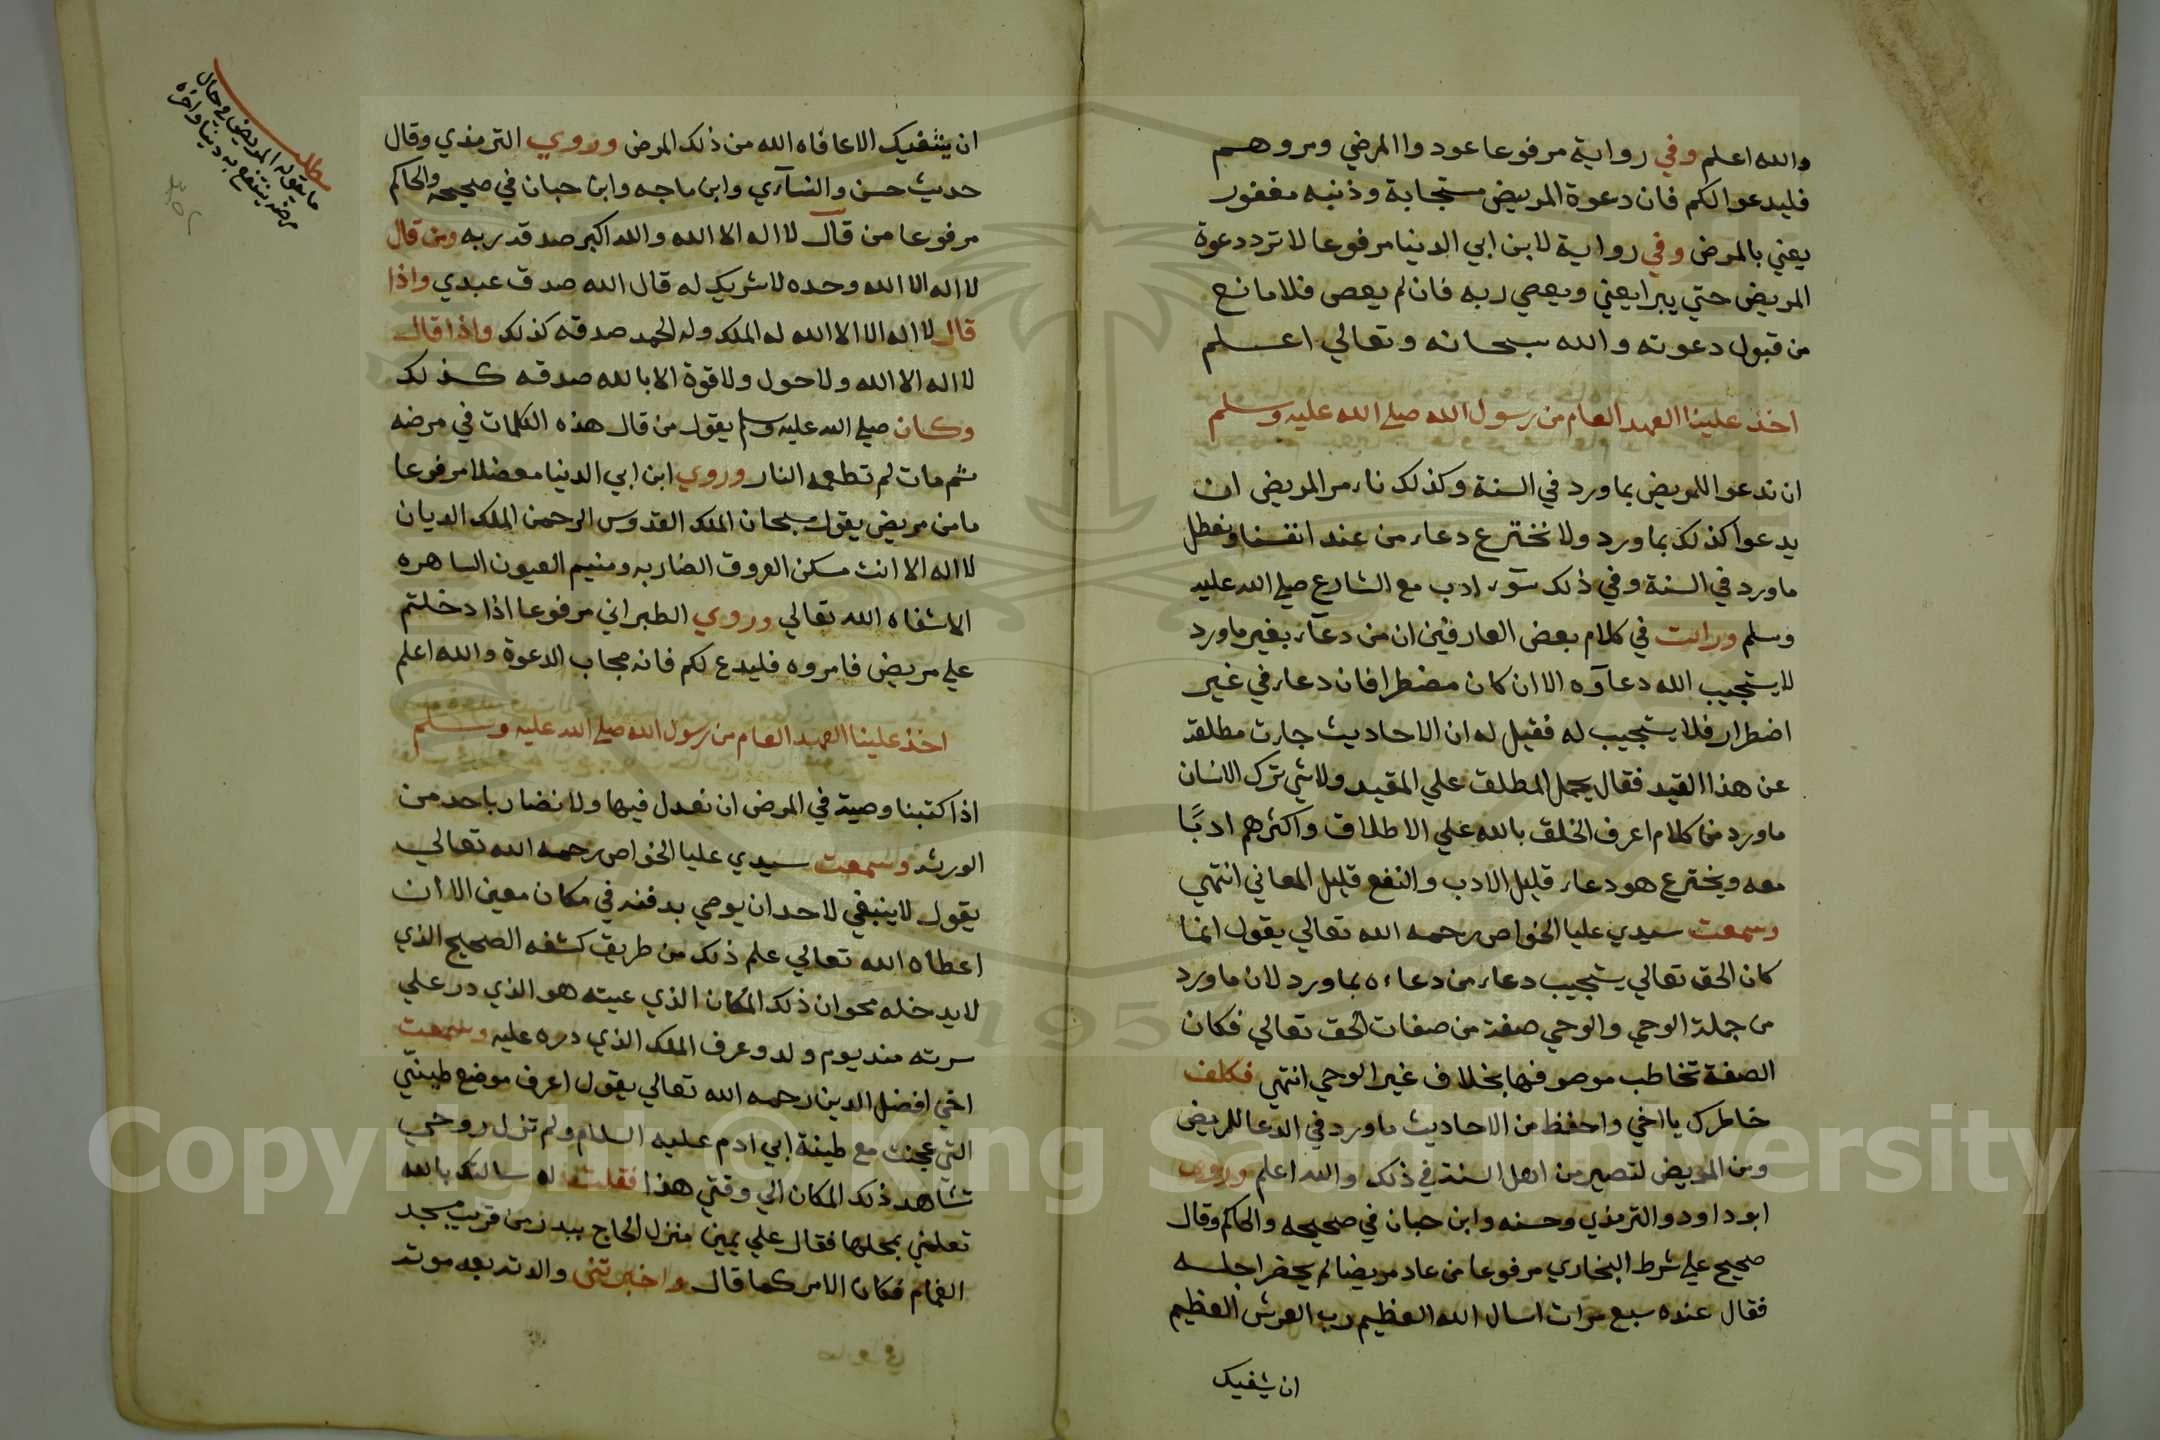 والله اعلم وفي رواية مرفوعا عودوا المرضي ومروهم
فليدعوا لكم فان دعوة المريض مستجابة وذنبه مغفور
يعني بالمرض وفي رواية لابن ابي الدنيا مرفوعا لا ترد دعوة
المريض حتي يبرا يعني ويعصي ربه فان لم يعص فلا مانع
من قبول دعوته والله سبحانه وتعالي اعلم
اخذ علينا العهد العام من رسول الله صلي الله عليه وسلم
ان ندعوا للمريض بما ورد في السنة وكذلك نامر المريض ان
يدعوا كذلك بما ورد ولا نخترع دعاء من عند انفسنا ونعطل
ما ورد في السنة وفي ذلك سوء ادب مع الشارع صلي الله عليه
وسلم ورايت في كلام بعض العارفين ان من دعاء بغير ما ورد
لا يستجيب الله دعاوه الا ان كان مضطرا فان دعاء في غير
اضطرار فلا يستجيب له فقيل له ان الاحاديث جاءت مطلقة
عن هذا القيد فقال يحمل المطلق علي المقيد ولاشي ترك الانسان
ما ورد من كلام اعرف الخلق بالله علي الاطلاق واكثرهم ادبًا
معه ويخترع هو دعاء قليل الادب والنفع قليل المعاني انتهي
وسمعت سيدي عليا الخواص رحمه الله تعالي يقول انما
كان الحق تعالي يستجيب دعاء من دعاءه بما ورد لان ما ورد
من جملة الوحي والوحي صفة من صفات الحق تعالي فكان
الصفة تخاطب موصوفها بخلاف غير الوحي انتهي فكلف
خاطرك يا اخي واحفظ من الاحاديث ما ورد في الدعا للمريض
ومن المريض لتصير من اهل السنة في ذلك والله اعلم وروي
ابو داود والترمذي وحسنه وابن حبان في صحيحه والحاكم وقال
صحيح علي شرط البخاري مرفوعا من عاد مريضا لم يحضر اجله
فقال عنده سبع مرات اسال الله العظيم رب العرش العظيم
ان يشفيك
ان يشفيك الا عافاه الله من ذلك المرض وروي الترمذي وقال
حديث حسن والنسآءي وابن ماجه وابن حبان في صحيحه والحاكم
مرفوعا من قال لا اله الا الله والله اكبر صدقه ربه ومن قال
لا اله الا الله وحده لا شريك له قال الله صدق عبدي واذا
قال لا اله الا الله له الملك وله الحمد صدقه كذلك واذا قال
لا اله الا الله ولا حول ولا قوة الا بالله صدقه كذلك
وكان صلي الله عليه وسلم يقول من قال هذه الكلمات في مرضه
ثم مات لم تطعمه النار وروي ابن ابي الدنيا معضلا مرفوعا
ما من مريض يقول سبحان الملك القدوس الرحمن الملك الديان
لا اله الا انت مسكن العروق الضاربه ومنيم العيون الساهره
الا شفاه الله تعالي وروي الطبراني مرفوعا اذا دخلتم
علي مريض فامروه فليدع لكم فانه مجاب الدعوة والله اعلم
اخذ علينا العهد العام من رسول الله صلي الله عليه وسلم
اذا كتبنا وصية في المرض ان نعدل فيها ولا نضار باحد من
الورثه وسمعت سيدي عليا الخواص رحمه الله تعالي
يقول لا ينبغي لاحد ان يوصي بدفنه في مكان معين الا ان
اعطاه الله تعالي علم ذلك من طريق كشفه الصحيح الذي
لا يدخله محو ان ذلك المكان الذي عينه هو الذي در علي
سرته منه يوم ولد وعرف الملك الذي دره عليه وسمعت
اخي افضل الدين رحمه الله تعالي يقول اعرف موضع طينتي
التي عجنت مع طينة ابي ادم عليه السلام ولم تزل روحي
تشاهد ذلك المكان الي وقتي هذا فقلت له سالتك بالله
تعلمني بمحلها فقال علي يمين منزل الحاج ببدر من قرب مسجد
الغمام فكان الامر كما قال واخبرتني والدته بعد موته
مطلب
ما يقوله المريض في حال
مرضه ينتفع به دنيا واخره
Copyright © King Saud University
1957